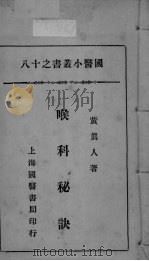 國醫小叢書之十八
黃眞人著
喉科秘訣
上海國醫書局印行